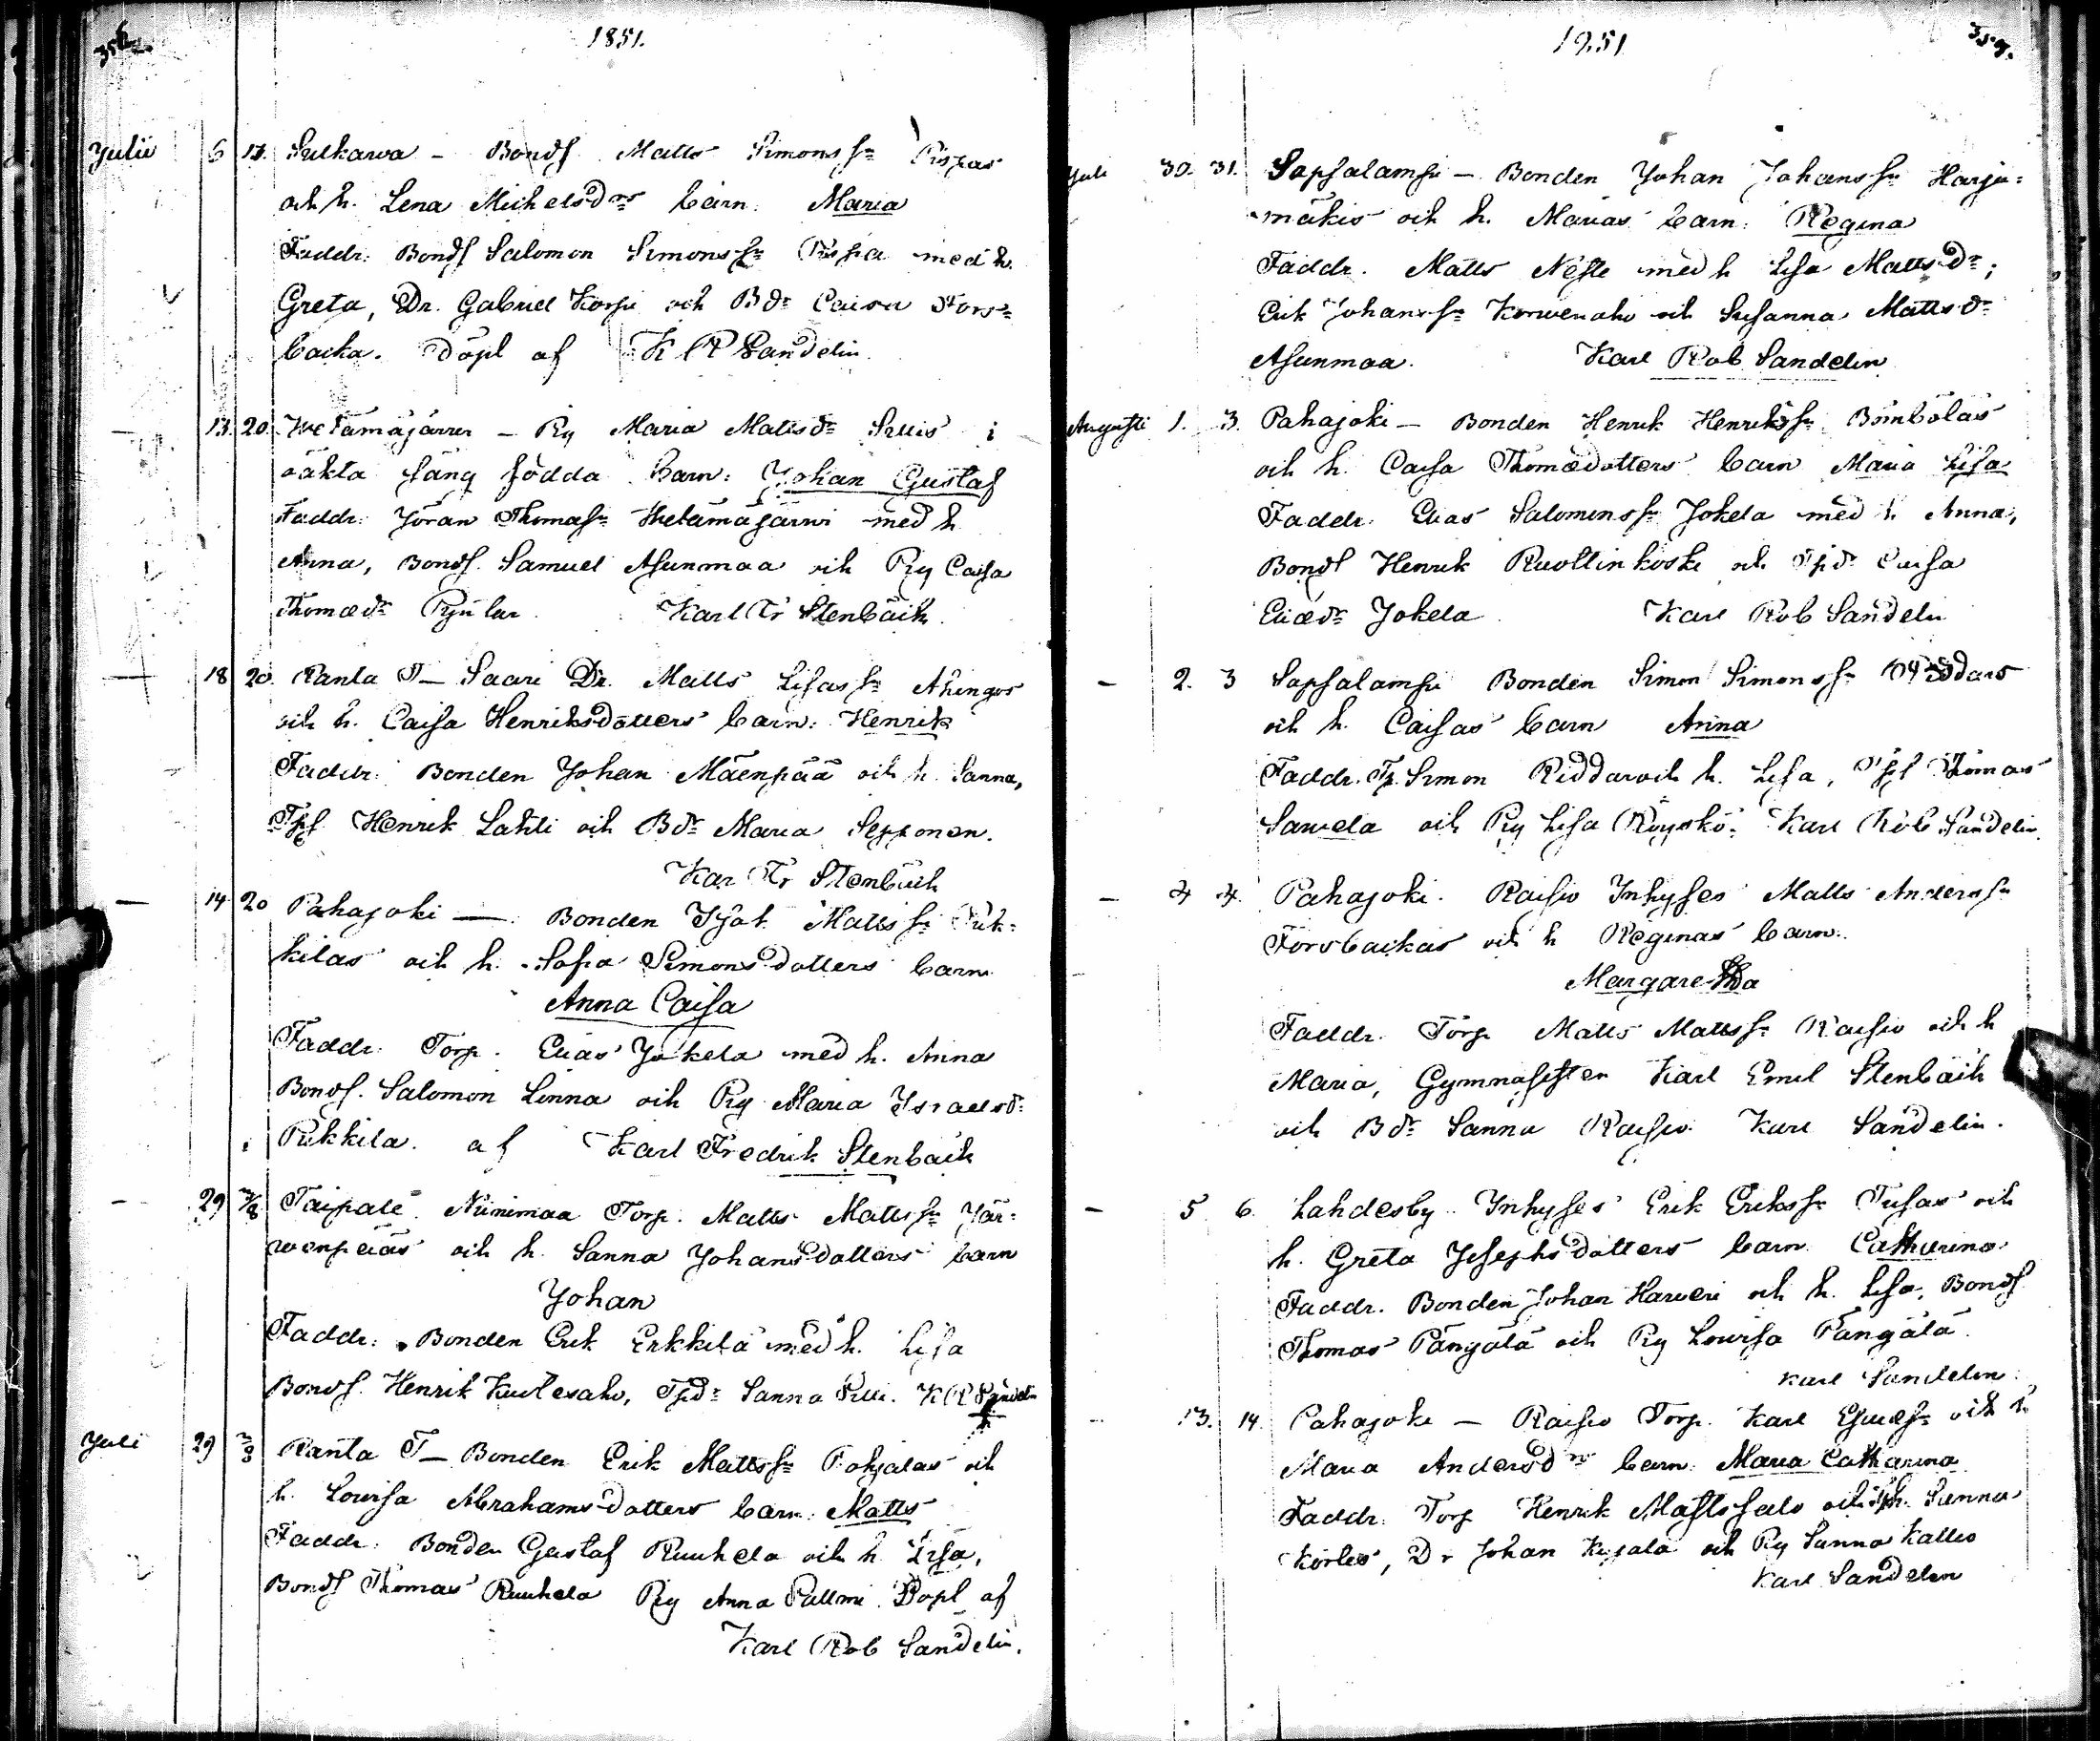 356.
1851.
Julii 6 17. Sulkava - Bonds. Matts Simonss:n Pispas
och h. Lena Michelsd:rs barn: Maria
Faddr: Bonds Salomon Simonss:n Pispa med h.
Greta, Dr. Gabriel Korpi och Bd:r Caisa Fors=
backa. Döpt af K R Sandelin
13. 20. Wetämäjärvi - Pig Maria Mattsd:r Sillis i
oäkta säng födda Barn: Johan Gustaf
Faddr: Jöran Thomass:n Hietamäjärvi med h.
Anna, Bonds. Samuel Asunmaa och Pig Caisa
Thomæd:r Karl Fr Stenbäck.
18 20. Ranta T - Saari Dr. Matts Lisass:n Ahingos
och h. Caisa Henriksdotters barn: Henrik
Faddr: Bonden Johan Mäenpää och h. Sanna,
Tps Henrik Lahti och Bd:r Maria Sepponen.
Kar Fr Stenbäck
- 14 20 Pahajoki - Bonden Isak Mattss:n Puk=
kilas och h. Sofia Simonsdotters barn
Anna Caisa
Faddr: Torp. Elias Jokela med h. Anna
Bonds. Salomon Linna och Pig Maria Israelsd:r
Pukkila. af Karl Fredrik Stenbäck
- 29 3/8 Taipale Niinimaa Torp. Matts Mattss:n Jär=
wenpääs och h. Sanna Johansdotters barn
Johan
Faddr: Bonden Erik Erkkilä med h. Lisa
Bonds. Henrik Kuolesaho, Tpd:r Sanna Pilli. K R Sandelin
Juli 29 3/8 Ranta T - Bonden Erik Mattss:n Pohjalas och
h. Lovisa Abrahamsdotters barn: Matts
Faddr: Bonden Gustaf Ruuhela och h. Lisa,
Bonds Thomas Ruuhela Pig Anna Pallmi. Döpt af
Karl Rob Sandelin.
1851
357.
Juli 30. 31. Sapsalampi - Bonden Johan Johanss:n Harju=
mäkis och h. Marias barn: Regina
Faddr. Matts Neste med h Lisa Mattsd:r;
Erik Johanss:n Korwenaho och Susanna Mattsd:r
Asunmaa. Karl Rob Sandelin
Augusti 1. 3. Pahajoki - Bonden Henrik Henrikss:n Bömbölas
och h. Caisa Thomædotters barn Maria Lisa
Faddr. Elias Salomonss:n Jokela med h. Anna,
Bonds Henrik Ruottinkoski och Tpd:r Caisa
Eliæd:r Jokela Karl Rob Sandelin
- 2. 3 Sapsalampi Bonden Simon Simonss:n Riddars
och h. Caisas barn Anna
Faddr. Tp. Simon Riddar och h. Lisa, Tps Thomas
Sawela och Pig Lisa Röyskö. Karl Rob Sandelin.
- 4. Pahajoki. Raisio Inhyses Matts Anderss:n
Forsbackas och h Reginas barn:
Margaretha
Faddr. Torp Matts Mattss:n Raisio och h
Maria, Gymnasisten Karl Emil Stenbäck
och Bd:r Sanna Raisio Karl Sandelin.
- 5 6. Lahdesby. Inhyses Erik Erikss:n Tusas och
h. Greta Josephsdotters barn Catharina
Faddr. Bonden Johan Harweri och h. Lisa, Bonds
Thomas Pängälä och Pig Lovisa Pängälä.
Karl Sandelin.
- 13. 14. Pahajoki - Raisio Torp. Karl Esaiæs:n och h
Maria Andersd:rs barn: Maria Catharina
Faddr: Torp Henrik Mastosalo och h. Sanna
Körtes, Dr Johan Kujala och Pig Sanna Kallio
Karl Sandelin